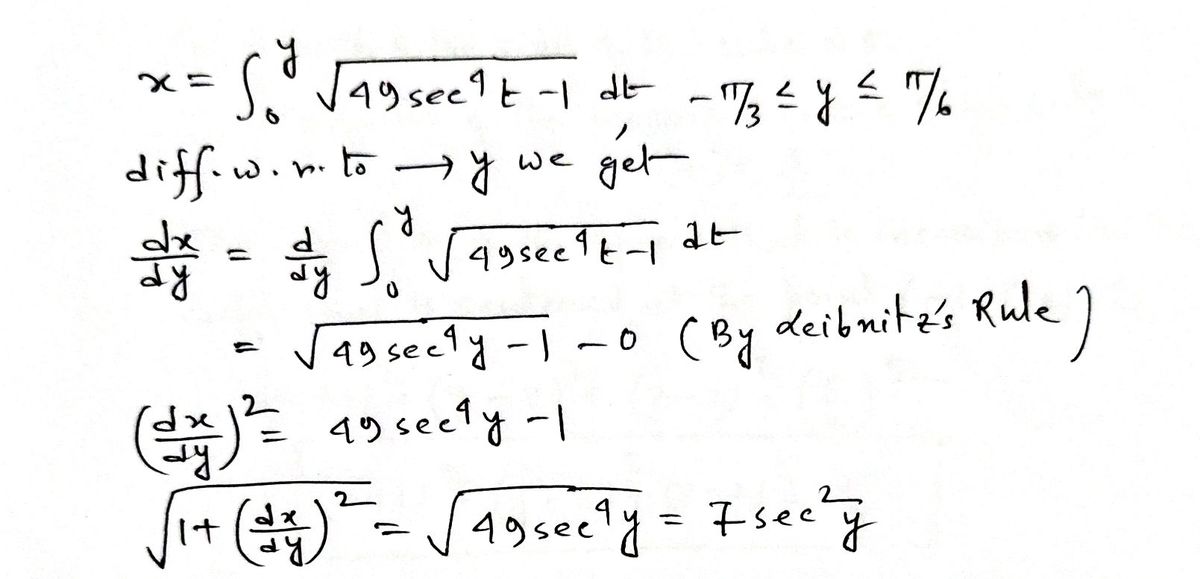 x = ∫₀^y √(49 sec⁴ t − 1) dt , −π/3 ≤ y ≤ π/6
diff. w. r. to → y we get
dx/dy = d/dy ∫₀^y √(49 sec⁴ t − 1) dt
= √(49 sec⁴ y − 1) − 0 (By Leibnitz's Rule)
(dx/dy)² = 49 sec⁴ y − 1
√(1 + (dx/dy)²) = √(49 sec⁴ y) = 7 sec² y